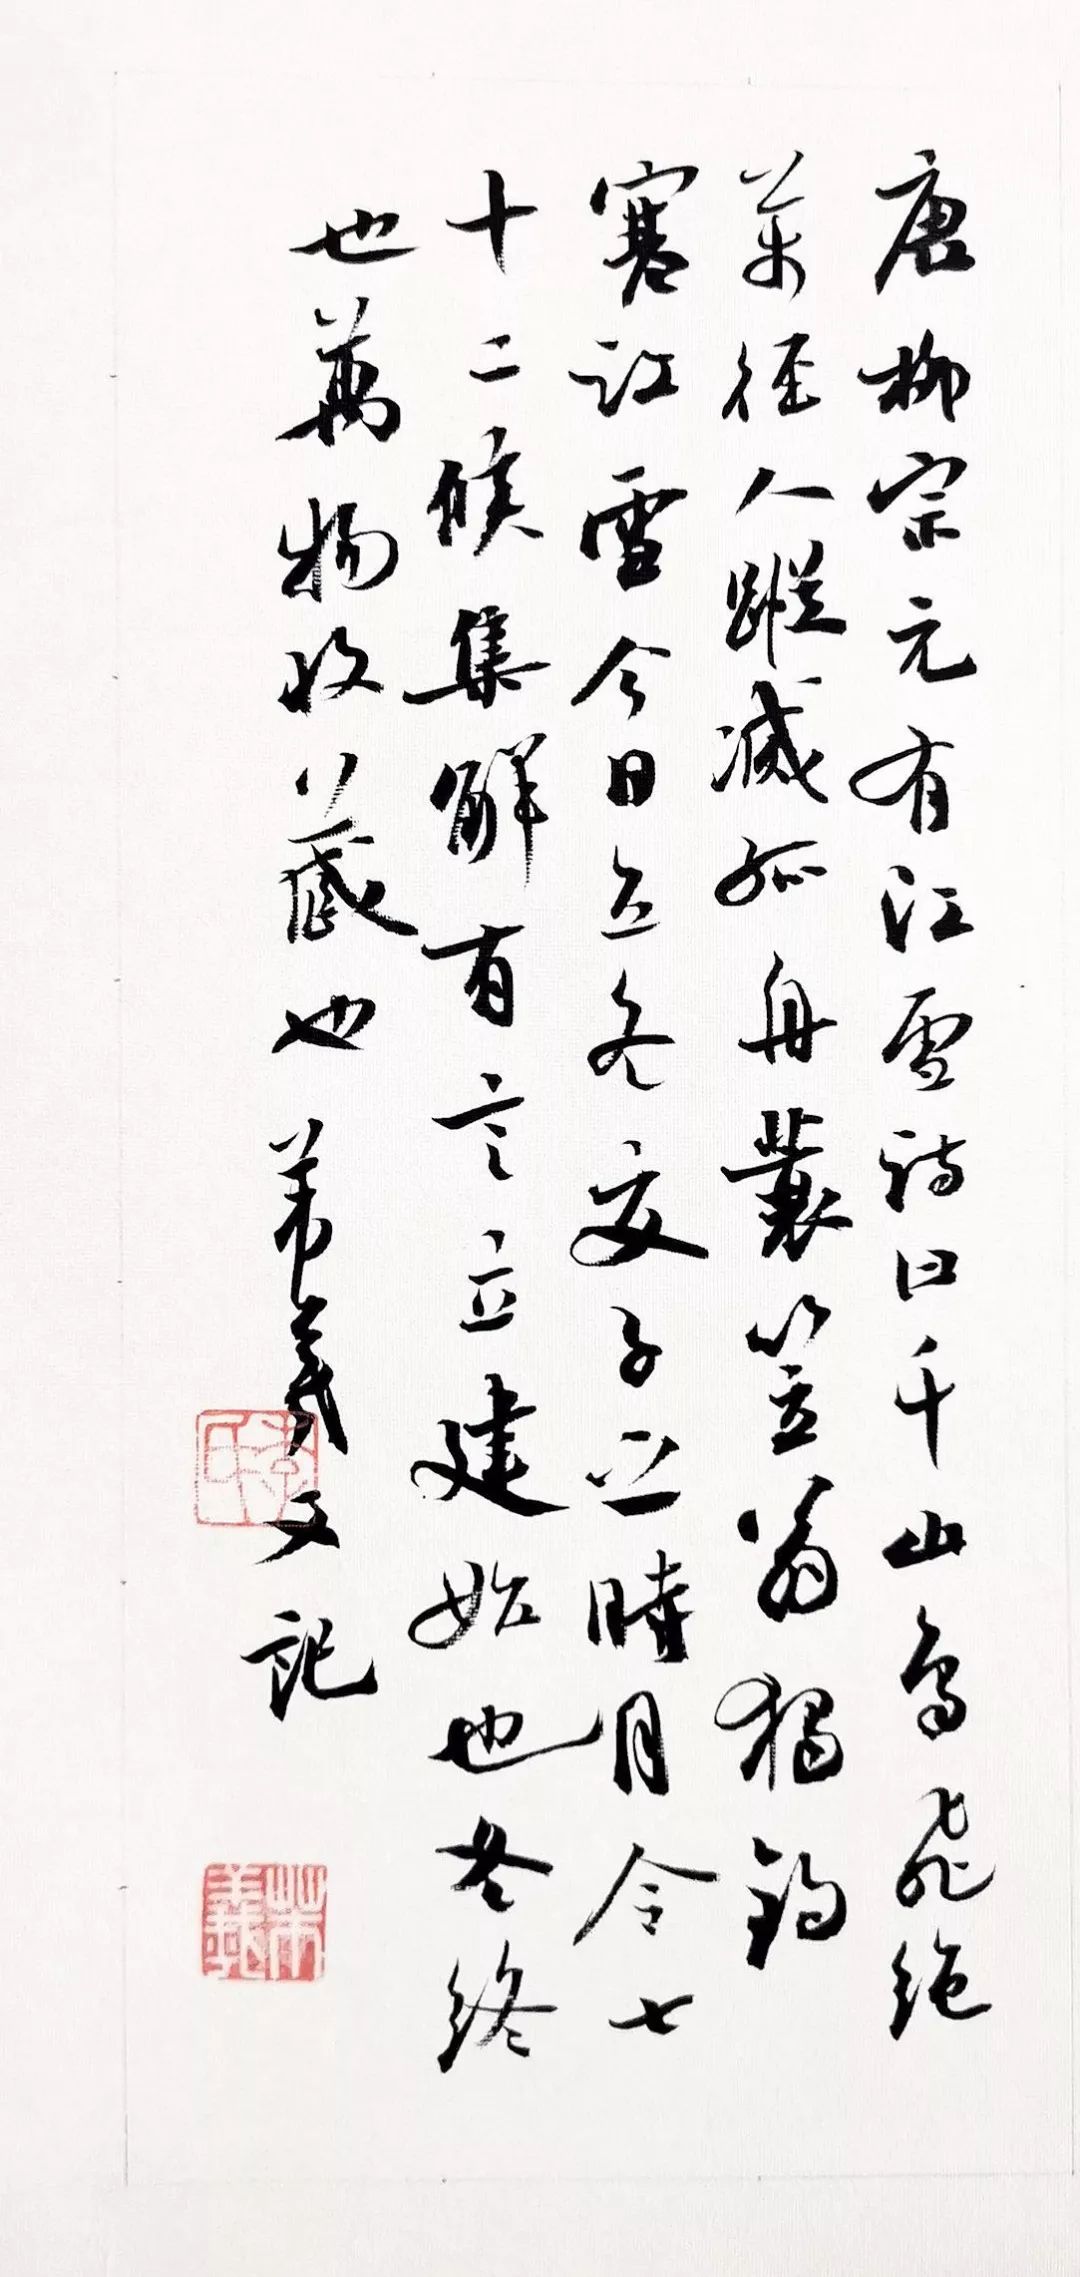 唐柳宗元有江雪詩曰千山鳥飛絶
萬徑人蹤滅孤舟蓑笠翁獨釣
寒江雪今日立冬交子之時月令七
十二候集解有言立建始也冬終
也萬物收藏也芾羲又記
芾羲